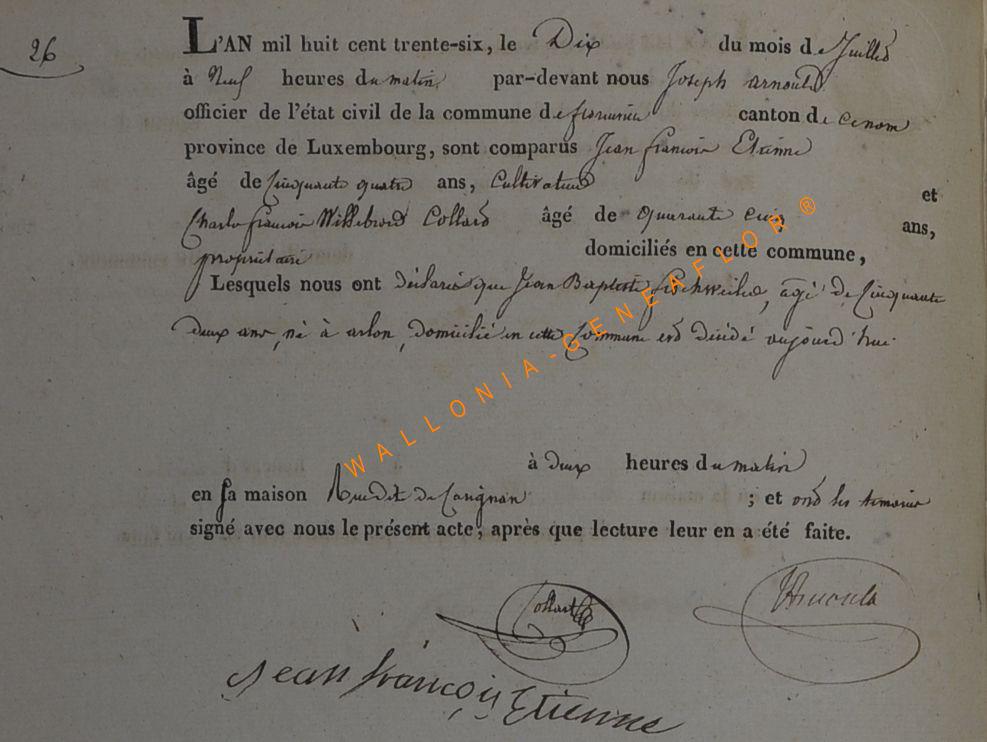 26
L'AN mil huit cent trente-six, le Dix du mois de Juillet
à Neuf heures du matin par-devant nous Joseph arnould
officier de l'état civil de la commune de canton de
province de Luxembourg, sont comparus Jean francois Etienne
âgé de Cinquante quatre ans, Cultivateur et
Charle francois Willebrord Collard âgé de quarante cinq ans,
propriétaire domiciliés en cette commune,
Lesquels nous ont déclaré que Jean Baptiste âgé de Cinquante
deux ans, né à arlon, domicilié en cette Commune est décédé aujourd'hui
à deux heures du matin
en sa maison Rue dit de Carignan ; et ont les témoins
signé avec nous le présent acte, après que lecture leur en a été faite.
Collard Arnould
Jean françois Etienne
WALLONIA-GENEAFLOR®